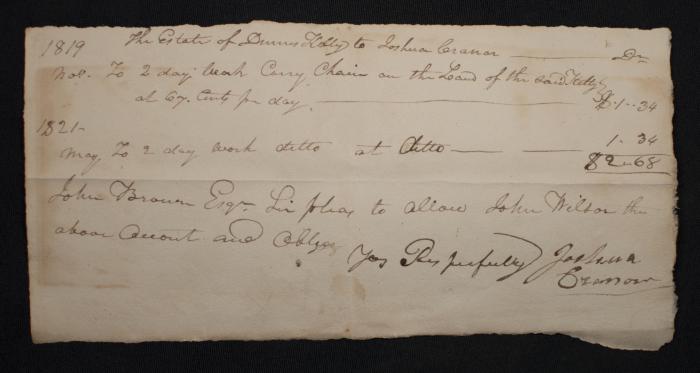 1819 The Estate of Dennis Kelly to Joshua Cranor — Dr
Nov. To 2 day work Carry Chain on the Land of the said Kelly
at 67 Cents pr day. — $1--34
1821-
May To 2 day work ditto at ditto — 1-34
$2-68
John Brown Esqr Sir pleas to allow John Wilson the
above Acount and oblige
Yos Respecfully Joshua
Cranor